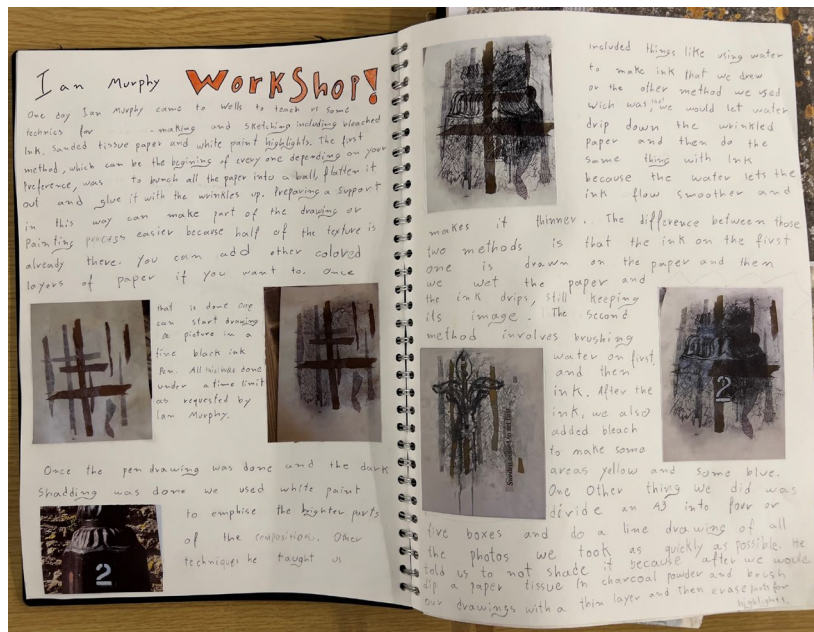 Ian Murphy WORKSHOP!
One day Ian Murphy came to Wells to teach us some
technics for making and sketching including bleached
Ink, Sanded tissue paper and white paint highlights. The first
method, which can be the begining of every one depending on your
Preference, was to bunch all the paper into a ball, flatten it
out and glue it with the wrinkles up. Preparing a support
in this way can make part of the drawing or
Painting process easier because half of the texture is
already there. You can add other colored
layers of paper if you want to. Once
that is done one
can start drawing
a picture in a
fine black ink
Pen. All this was done
under a time limit
as requested by
Ian Murphy.
Once the pen drawing was done and the dark
Shadding was done we used white paint
to emphise the brighter parts
of the composition. Other
techniques he taught us
2
included things like using water
to make ink that we drew
or the other method we used
wich was, that we would let water
drip down the wrinkled
paper and then do the
same thing with Ink
because the water lets the
ink flow smoother and
makes it thinner. The difference between those
two methods is that the ink on the first
one is drawn on the paper and then
we wet the paper and
the ink drips, still keeping
its image. The second
method involves brushing
water on first
and then
ink. After the
ink, we also
added bleach
to make some
areas yellow and some blue.
One Other thing we did was
divide an A3 into four or
five boxes and do a line drawing of all
the photos we took as quickly as possible. He
told us to not shade it because after we would
dip a paper tissue in charcoal powder and brush
our drawings with a thin layer and then erase parts for
highlights.
2